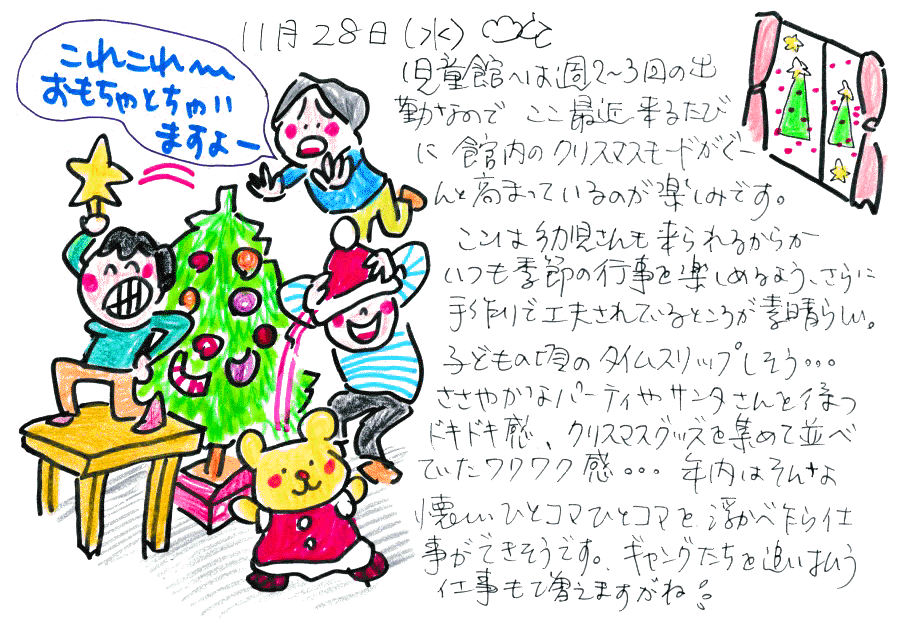 これこれ〜
おもちゃとちゃいますよー
11月28日(水)
児童館へは週2〜3回の出
勤なので ここ最近来るたび
に 館内のクリスマスモードがぐー
んと高まっているのが楽しみです。
ここは幼児さんも来られるからか
いつも季節の行事を楽しめるよう、さらに
手作りで工夫されているところが素晴らしい。
子どもの頃のタイムスリップしそう・・・
ささやかなパーティやサンタさんを待つ
ドキドキ感、クリスマスグッズを集めて並べ
ていたワクワク感・・・ 年内はそんな
懐しいひとコマひとコマを浮かべながら仕
事ができそうです。ギャングたちを追いはらう
仕事も増えますがね!